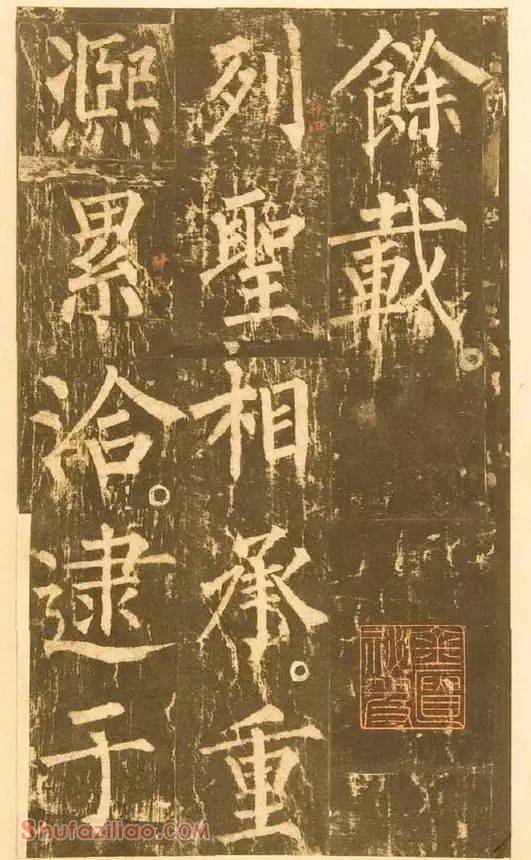 餘載。
列聖相承。重
凞累洽。逮于
Shufaziliao.COM